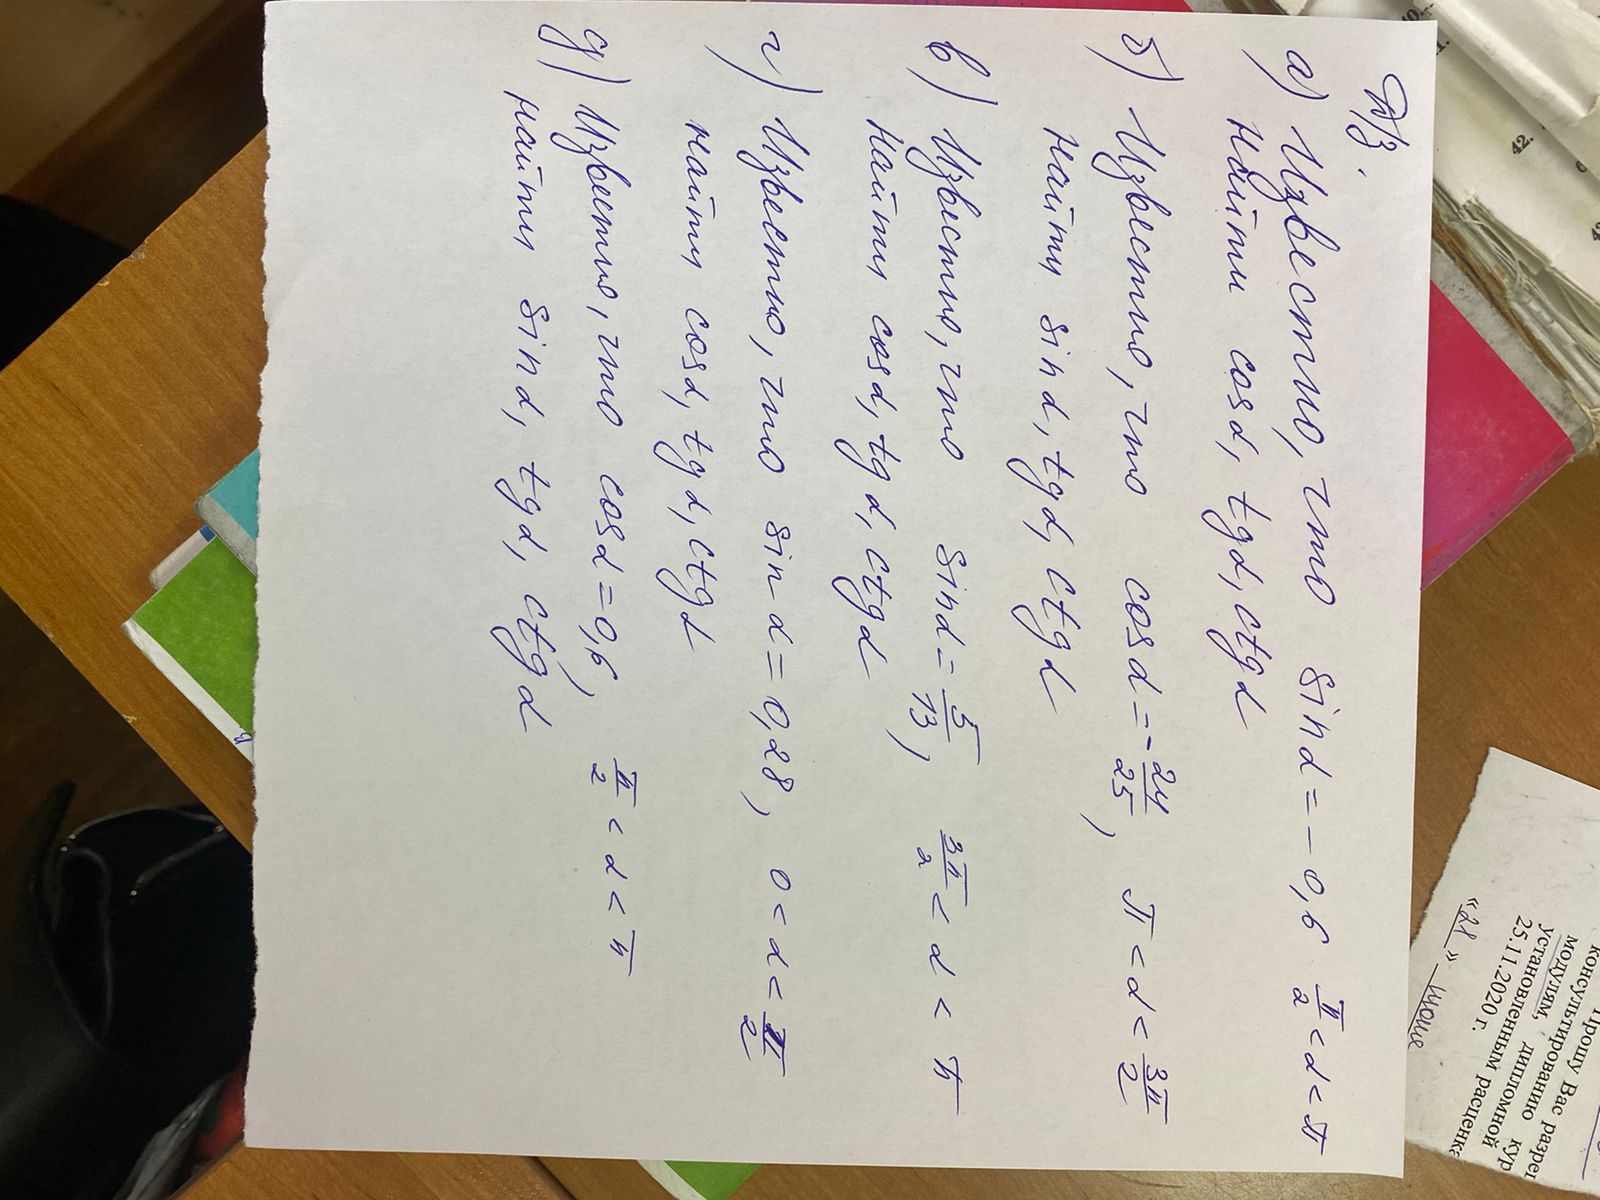 Д/З.
а) Известно, что sin α = -0,6 π/2 < α < π
найти cos α, tg α, ctg α
б) Известно, что cos α = -24/25, π < α < 3π/2
найти sin α, tg α, ctg α
в) Известно, что sin α = 5/13, 3π/2 < α < π
найти cos α, tg α, ctg α
г) Известно, что sin α = 0,28, 0 < α < π/2
найти cos α, tg α, ctg α
д) Известно, что cos α = 0,6, π/2 < α < π
найти sin α, tg α, ctg α
42.
Прошу Вас разре
консультированию кур
модулям, дипломной
установленным расценк
25.11.2020 г.